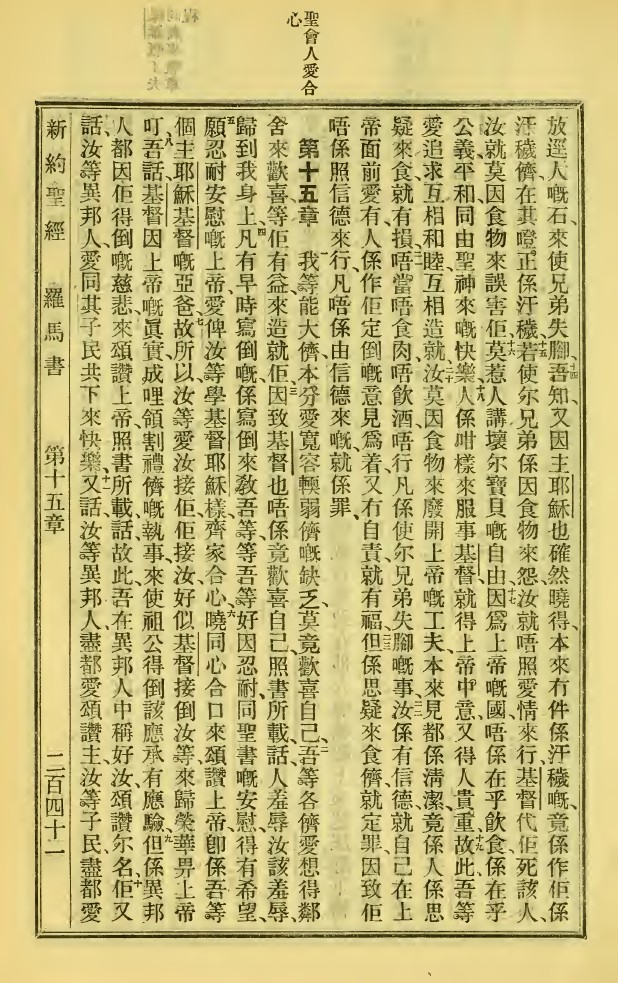 聖會人愛合
心
放逕人嘅石、來使兄弟失腳、十四吾知又因主耶穌也確然曉得本來冇件係汙穢嘅、竟係作佢係
汙穢儕、在其噔正係汙穢、十五若使尔兄弟係因食物來怨汝、就唔照愛情來行、基督代佢死該人、
汝就莫因食物來誤害佢、十六莫惹人講壞尔寶貝嘅自由、十七因爲上帝嘅國唔係在乎飲食、係在乎
公義平和同由聖神來嘅快樂、十八人係咁樣來服事基督就得上帝中意、又得人貴重、十九故此吾等
愛追求互相和睦互相造就、二十汝莫因食物來廢開上帝嘅工夫、本來見都係清潔、竟係人係思
疑來食就有損、二一唔當唔食肉唔飲酒唔行凡係使尔兄弟失腳嘅事、二二汝係有信德、就自己在上
帝面前愛有、人係作佢定倒嘅意見爲着、又冇自責、就有福、二三但係思疑來食儕、就定罪、因致佢
唔係照信德來行、凡唔係由信德來嘅、就係罪、
第十五章　一我等能大儕、本分愛寬容輭弱儕嘅缺乏、莫竟歡喜自己、二吾等各儕愛想得鄰
舍來歡喜、等佢有益來造就佢、三因致基督也唔係竟歡喜自己、照書所載話、人羞辱汝該羞辱、
歸到我身上、四凡有早時寫倒嘅、係寫倒來敎吾等、等吾等好因忍耐、同聖書嘅安慰、得有希望、
五願忍耐安慰嘅上帝、愛俾汝等學基督耶穌樣、齊家合心、六曉同心合口來頌讚上帝、卽係吾等
個主耶穌基督嘅亞爸、七故所以汝等愛汝接佢佢接汝、好似基督接倒汝等來歸榮華畀上帝
八叮吾話基督因上帝嘅眞實、成哩領割禮儕嘅執事、來使祖公得倒該應承有應驗、九但係異邦
人都因佢得倒嘅慈悲來頌讚上帝、照書所載話、故此吾在異邦人中稱好汝、頌讚尔名、十佢又
話、汝等異邦人、愛同其子民共下來快樂、十一又話、汝等異邦人、盡都愛頌讚主、汝等子民、盡都愛
新約聖經　羅馬書　第十五章　二百四十一